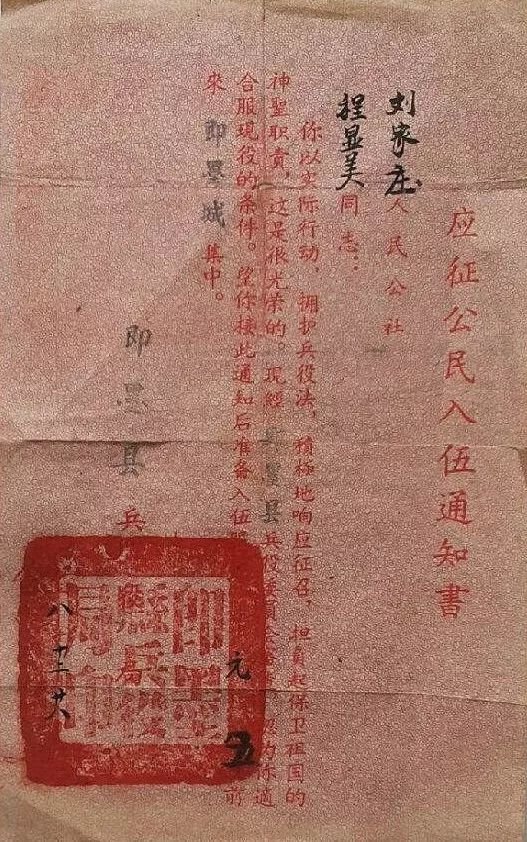 应征公民入伍通知書
刘家庄人民公社
程显美同志：
你以实际行动，拥护兵役法，積極地响应征召，担負起保卫祖国的
神聖职責，这是很光荣的。現經即墨县兵役委員会为你適
合服現役的条件。望你接此通知后准备入伍元五前
來即墨城集中。
即墨县兵
即墨
县兵役
局印
八